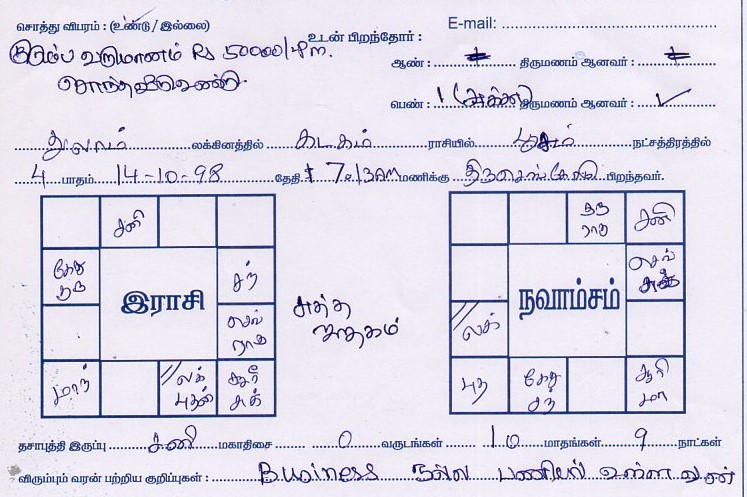 சொத்து விபரம் : (உண்டு / இல்லை)
E-mail:
குடும்ப வருமானம் Rs 50000/-P.m.
உடன் பிறந்தோர் :
ஆண் : திருமணம் ஆனவர் :
சொந்த வீடு உண்டு.
பெண் : 1 (அக்கா) திருமணம் ஆனவர் : ✓
துலாம் லக்கினத்தில் கடகம் ராசியில் பூசம் நட்சத்திரத்தில்
4 பாதம் 14-10-98 தேதி 7.13AM மணிக்கு திருசெங்கோடு பிறந்தவர்.
சனி
குரு ராகு சனி
கேது குரு
சந்
செவ் சுக்
இராசி
நவாம்சம்
சுத்த ஜாதகம்
செவ் ராகு
லக்
மாந்
லக் புதன்
சூரி சுக்
புத
கேது சந்
சூரி மா
தசாபுத்தி இருப்பு சனி மகாதிசை 0 வருடங்கள் 10 மாதங்கள் 9 நாட்கள்
விரும்பும் வரன் பற்றிய குறிப்புகள் : Business நல்ல பணியில் உள்ள வரன்